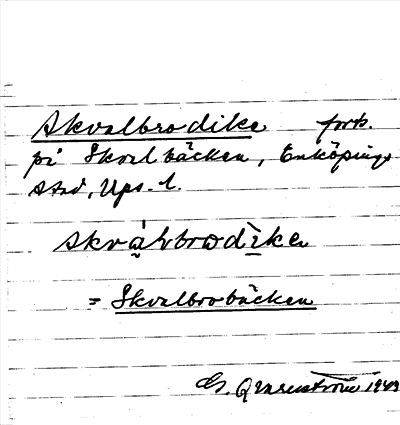 Skvalbrodike forts.
på Skvalbäcken, Enköpings
stad, Ups. l.
skvàlbrodìke
= Skvalbrobäcken
G. 1949